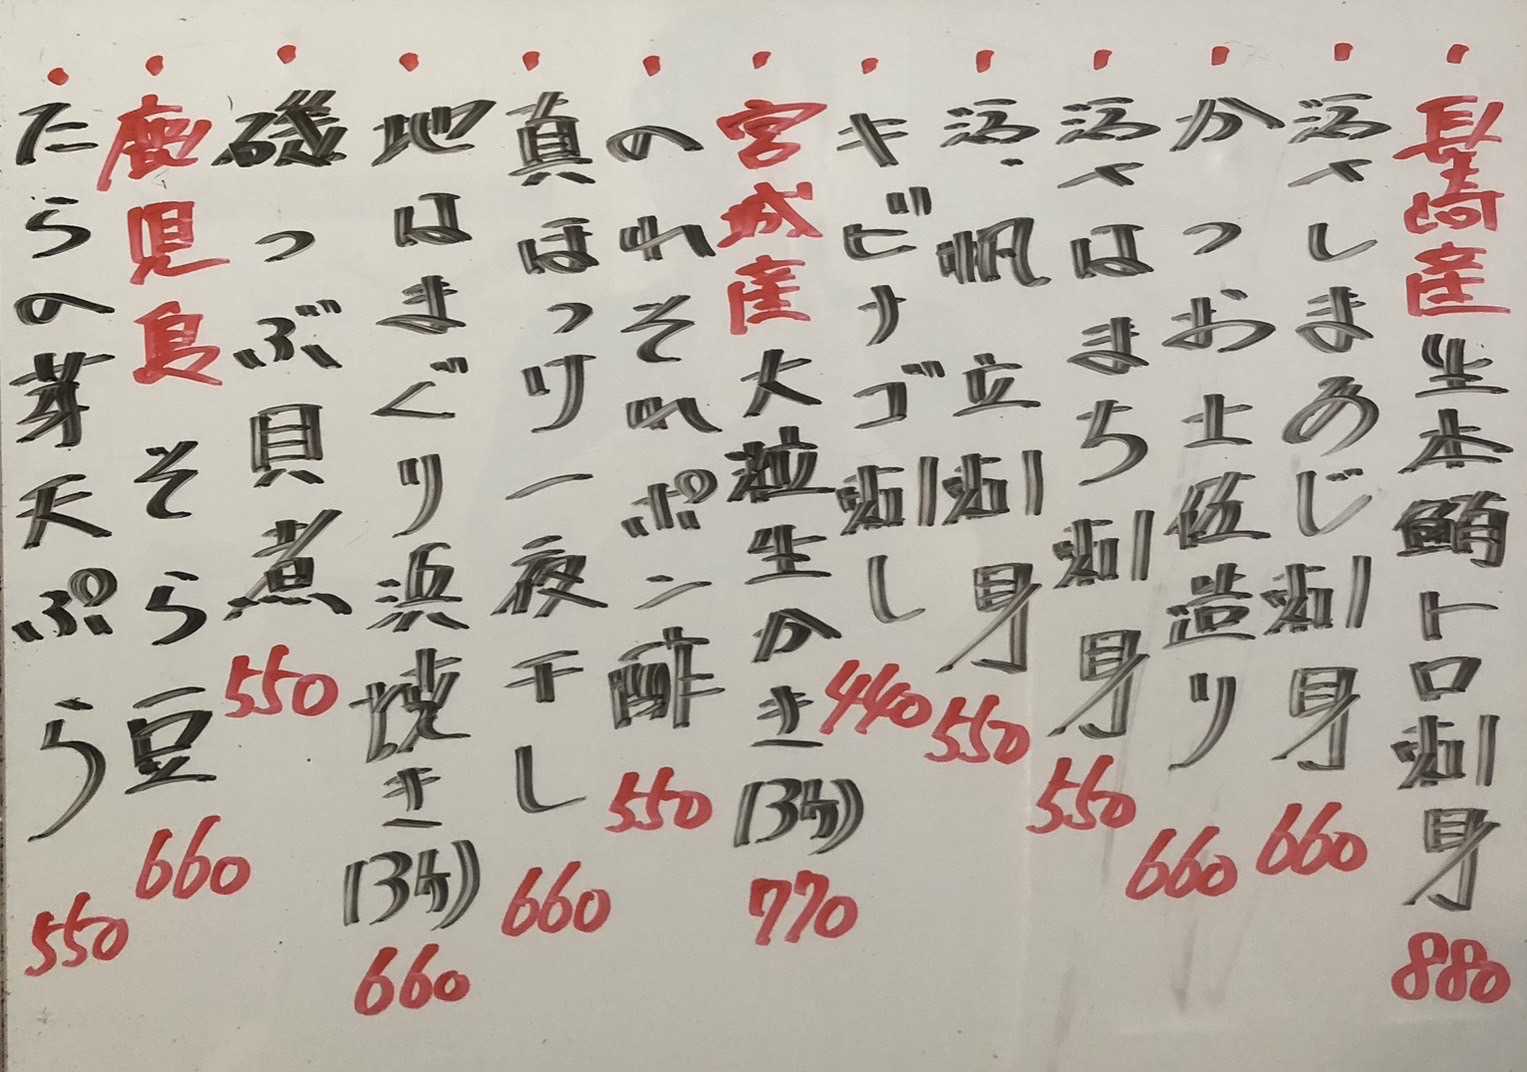 ・長崎産生本鮪トロ刺身 880
・活〆しまあじ刺身 660
・かつお土佐造り 660
・活〆はまち刺身 550
・活、帆立刺身 550
・キビナゴ刺し 440
・宮城産大粒生かき(3ケ) 770
・のれそれポン酢 550
・真ほっけ一夜干し 660
・地はまぐり浜焼き(3ケ) 660
・磯つぶ貝煮 550
・鹿児島そら豆 660
・たらの芽天ぷら 550